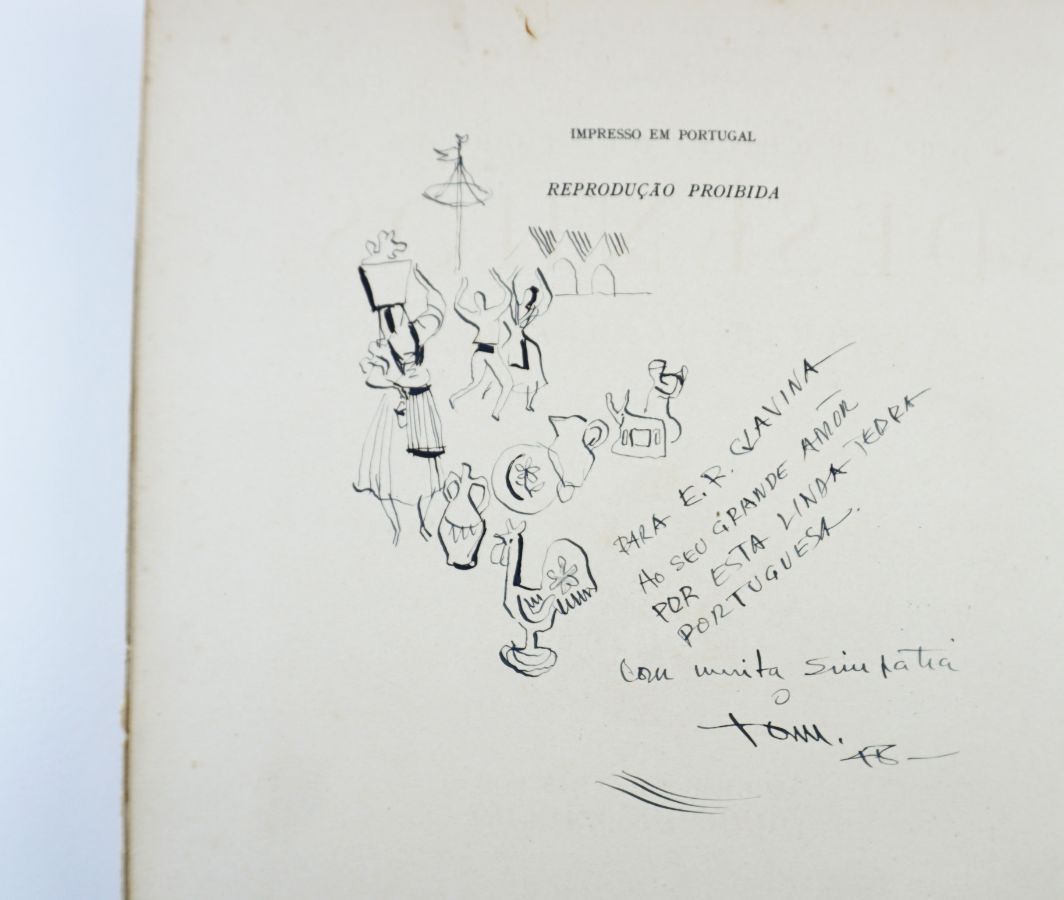 IMPRESSO EM PORTUGAL
REPRODUÇÃO PROIBIDA
PARA E.R. CLAVINA
AO SEU GRANDE AMOR
POR ESTA LINDA TERRA
PORTUGUESA.
Com muita simpatia
o
tom.